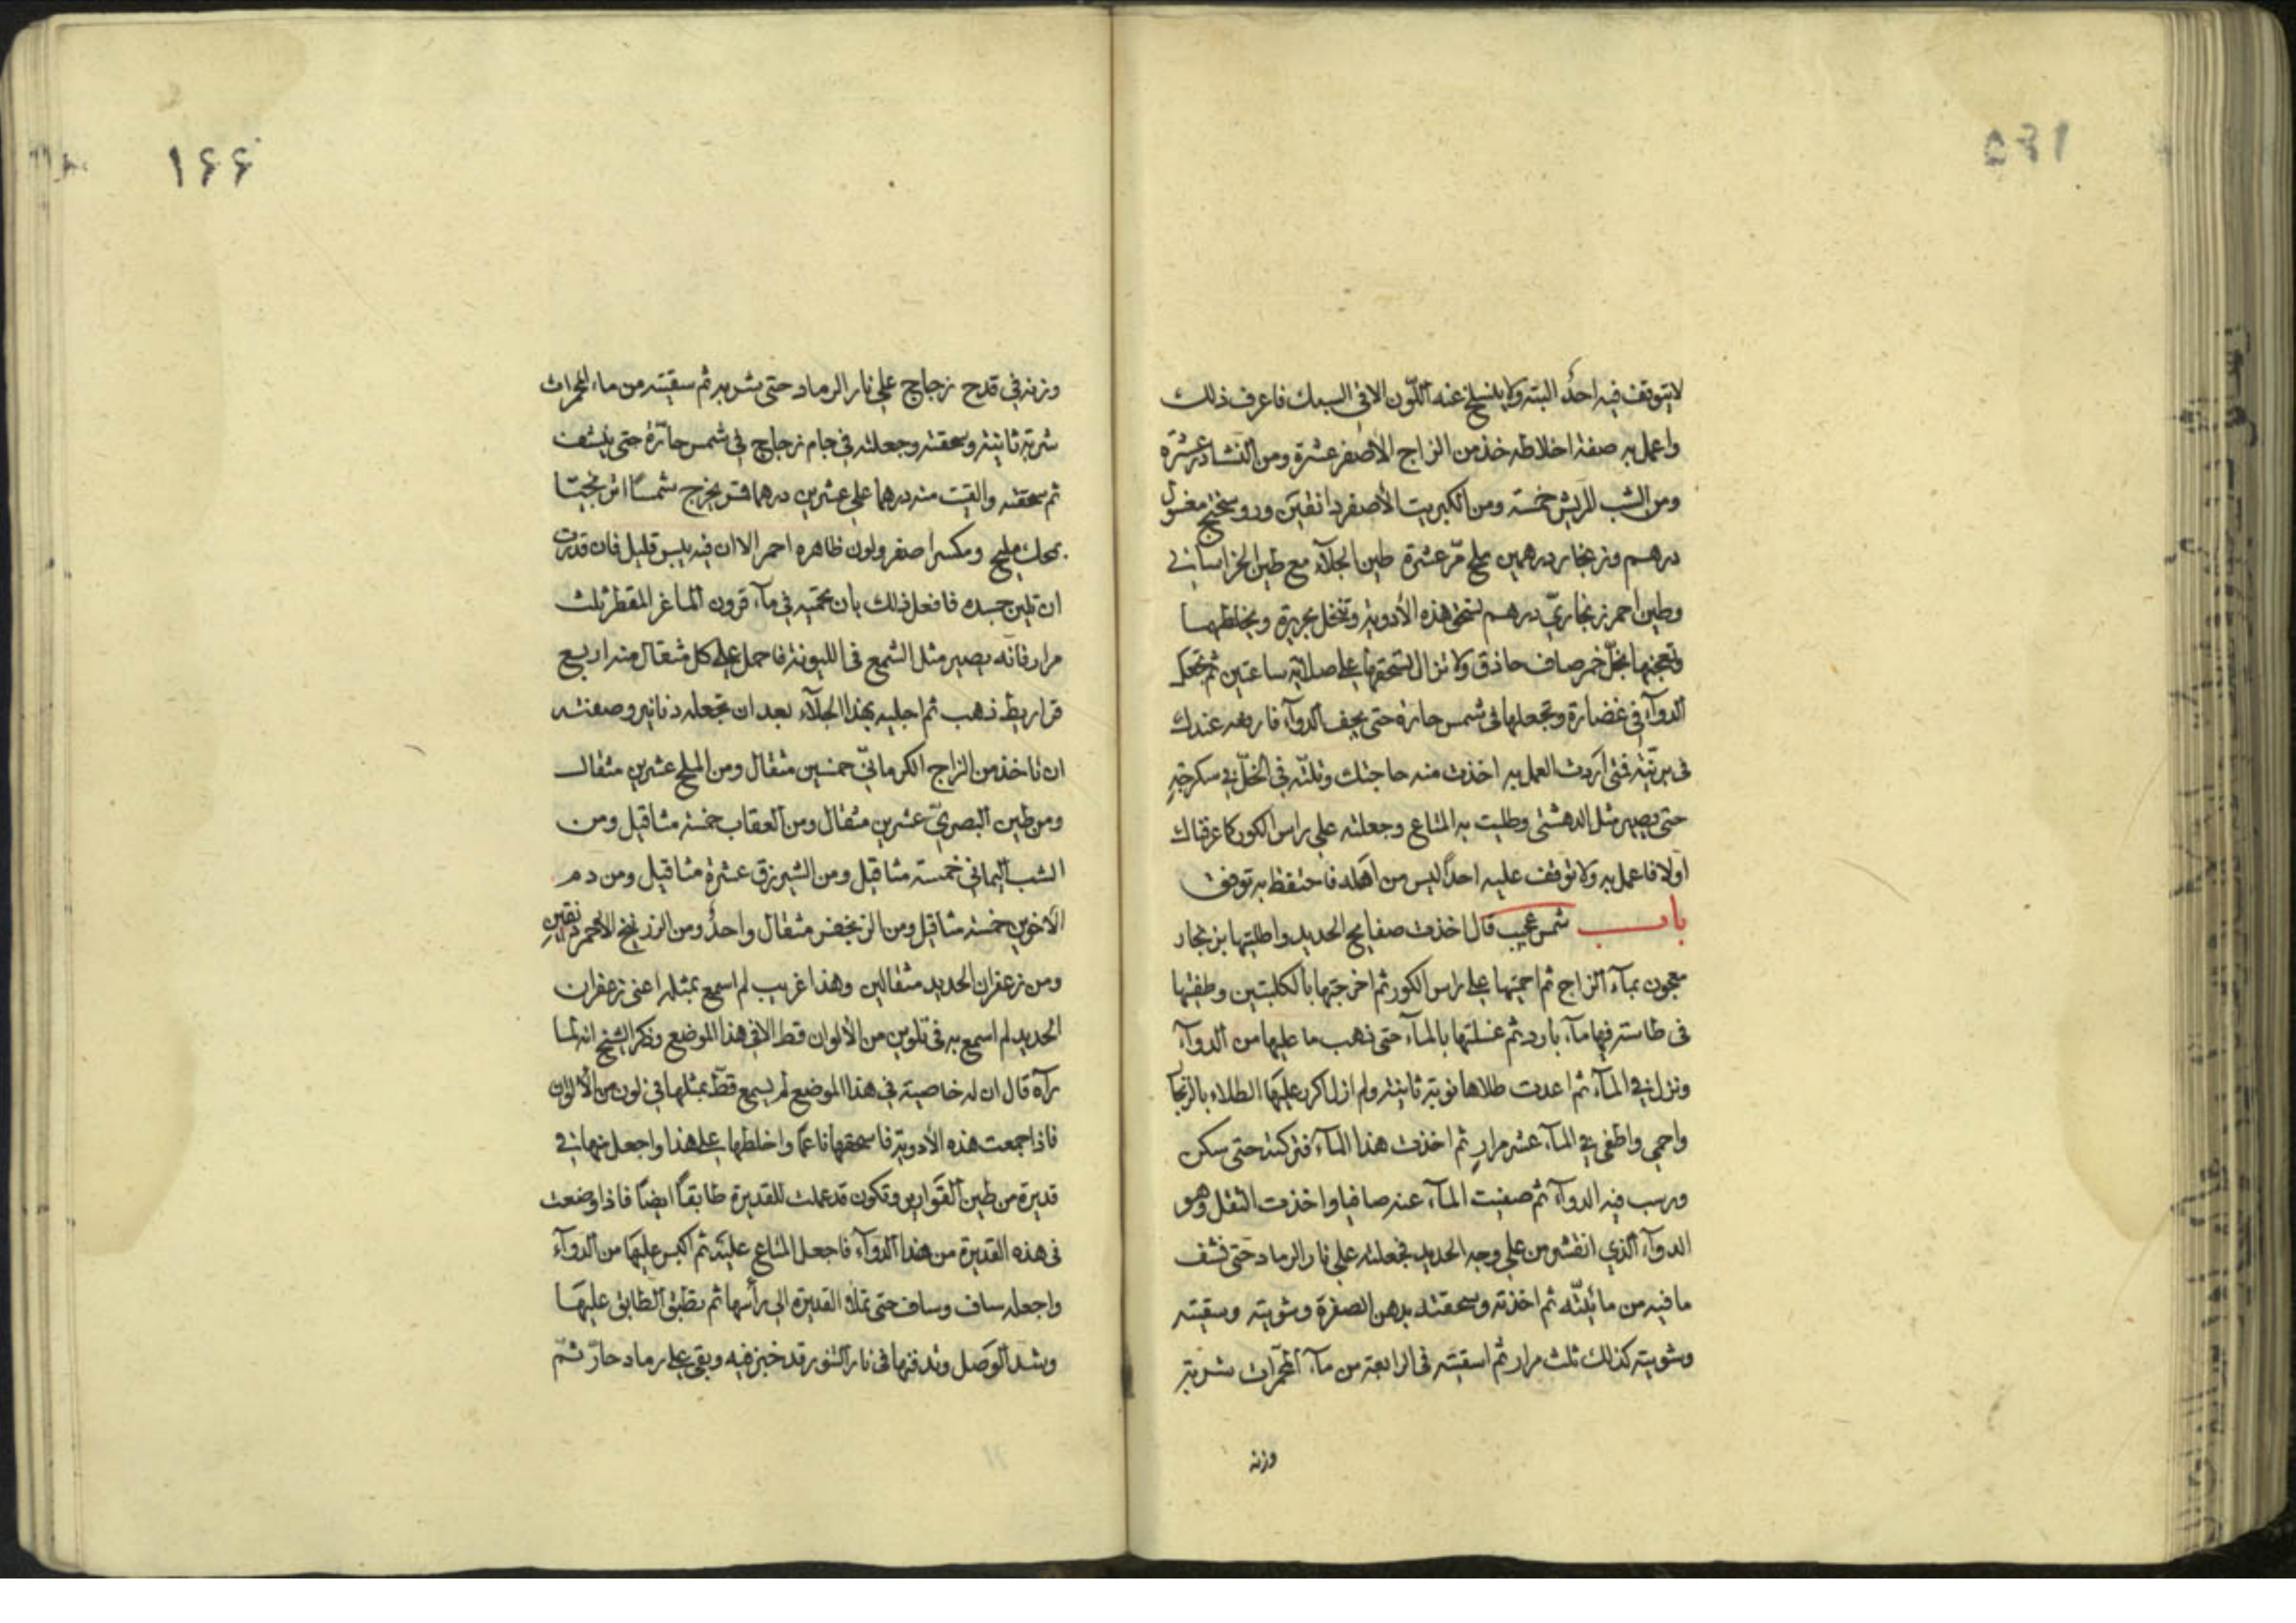 لايتوقف فيه احدٌ البتة ولا ينسلخ عنه اللّون الا في السبك فاعرف ذلك
واعمل به صفة اخلاطه خذ من الزاج الأصفر عشرة ومن النشادر عشرة
ومن الشب المريش خمسة ومن الكبريت الأصفر دانقين وروسختج مغسول
درهم وزنجار درهمين ملح مرّ عشرة طين الجلآء مع طين الخراساني
وطين احمر زنجاريّ درهم تسحق هذه الأدوية وتنخل بحريرة ويخلطها
وتعجنها بخلّ خمر صاف حاذق ولا تزال تسحقها على صلاية ساعتين ثم تجعل
الدوآء في غضارة وتجعلها في شمس حارة حتى يجف الدوآء فارفعه عندك
في برنية فمتى اردت العمل به اخذت منه حاجتك وبلّته في الخلّ في سكرجة
حتى يصير مثل الدهشتى وطليت به المتاع وجعلته على راس الكور كما عرفناك
اولا فاعمل به ولا توقف عليه احدًا ليس من اهله فاحتفظ به توفق
باب شمس عجيب قال اخذت صفايح الحديد واطليتها بزنجار
معجون بمآء الزاج ثم احميتها على راس الكور ثم اخرجتها بالكلبتين وطفيتها
في طاسة فيها مآء بارد ثم غسلتها بالمآء حتى ذهب ما عليها من الدوآء
ونزل في المآء ثم اعدت طلاها نوبة ثانية ولم ازل اكرر عليها الطلاء بالزنجار
واحمي واطفي في المآء عشر مرار ثم اخذت هذا المآء فتركته حتى سكن
ورسب فيه الدوآء ثم صفيت المآء عنه صافيا واخذت الثفل وهو
الدوآء الذي انقشر من على وجه الحديد فجعلته على نار الرماد حتى نشف
ما فيه من مائيّته ثم اخذته وسحقته بدهن الصفرة وشويته وسقيته
وشويته كذلك ثلث مرار ثم اسقيته في الرابعة من مآء المحمّرات شربة
وزنه
١٦٥
١۶۶
وزنه في قدح زجاج على نار الرماد حتى يشربه ثم سقيته من ماء المحمرات
شربة ثانية وسحقته وجعلته في جام زجاج في شمس حارّة حتى ينشف
ثم سحقته والقيت منه درهما على عشرين درهما قمر يخرج شمسًا ابريجيّا
بمحك مليح ومكسر اصفر ولون ظاهره احمر الا ان فيه يبس قليل فان قدرت
ان تلين جسده فافعل ذلك بان تحميه في مآء قرون الماعز المقطر ثلث
مرار فانه يصير مثل الشمع في الليونة فاحمل على كل مثقال منه اربع
قراريط ذهب ثم اجليه بهذا الجلآء بعد ان تجعله دنانير وصفته
ان تاخذ من الزاج الكرمانيّ خمسين مثقال ومن الملح عشرين مثقال
ومن طين البصريّ عشرين مثقال ومن العقاب خمسة مثاقيل ومن
الشب اليماني خمسة مثاقيل ومن الشيرزق عشرة مثاقيل ومن دم
الأخوين خمسة مثاقيل ومن الزنجفر مثقال واحدٌ ومن الزرنيخ الأحمر دانقين
ومن زعفران الحديد مثقالين وهذا غريب لم اسمع بمثله اعنى زعفران
الحديد لم اسمع به في تلوين من الألوان قط الا في هذا الموضع وذكر الشيخ انه لما
رآه قال ان له خاصية في هذا الموضع لم يسمع قطّ بمثلها في لون من الألوان
فاذا جمعت هذه الأدوية فاسحقها ناعمًا واخلطها على هذا واجعل منها في
قديرة من طين القوارير وتكون قد عملت للقديرة طابقًا ايضًا فاذا وضعت
في هذه القديرة من هذا الدوآء فاجعل المتاع عليه ثم اكبس عليها من الدوآء
واجعله ساف وساف حتى تملأ القديرة الى رأسها ثم يطبق الطابق عليها
ويشد الوصل وتدفنها في نار التنور قد خبز فيه وبقي على رماد حارّ ثمّ